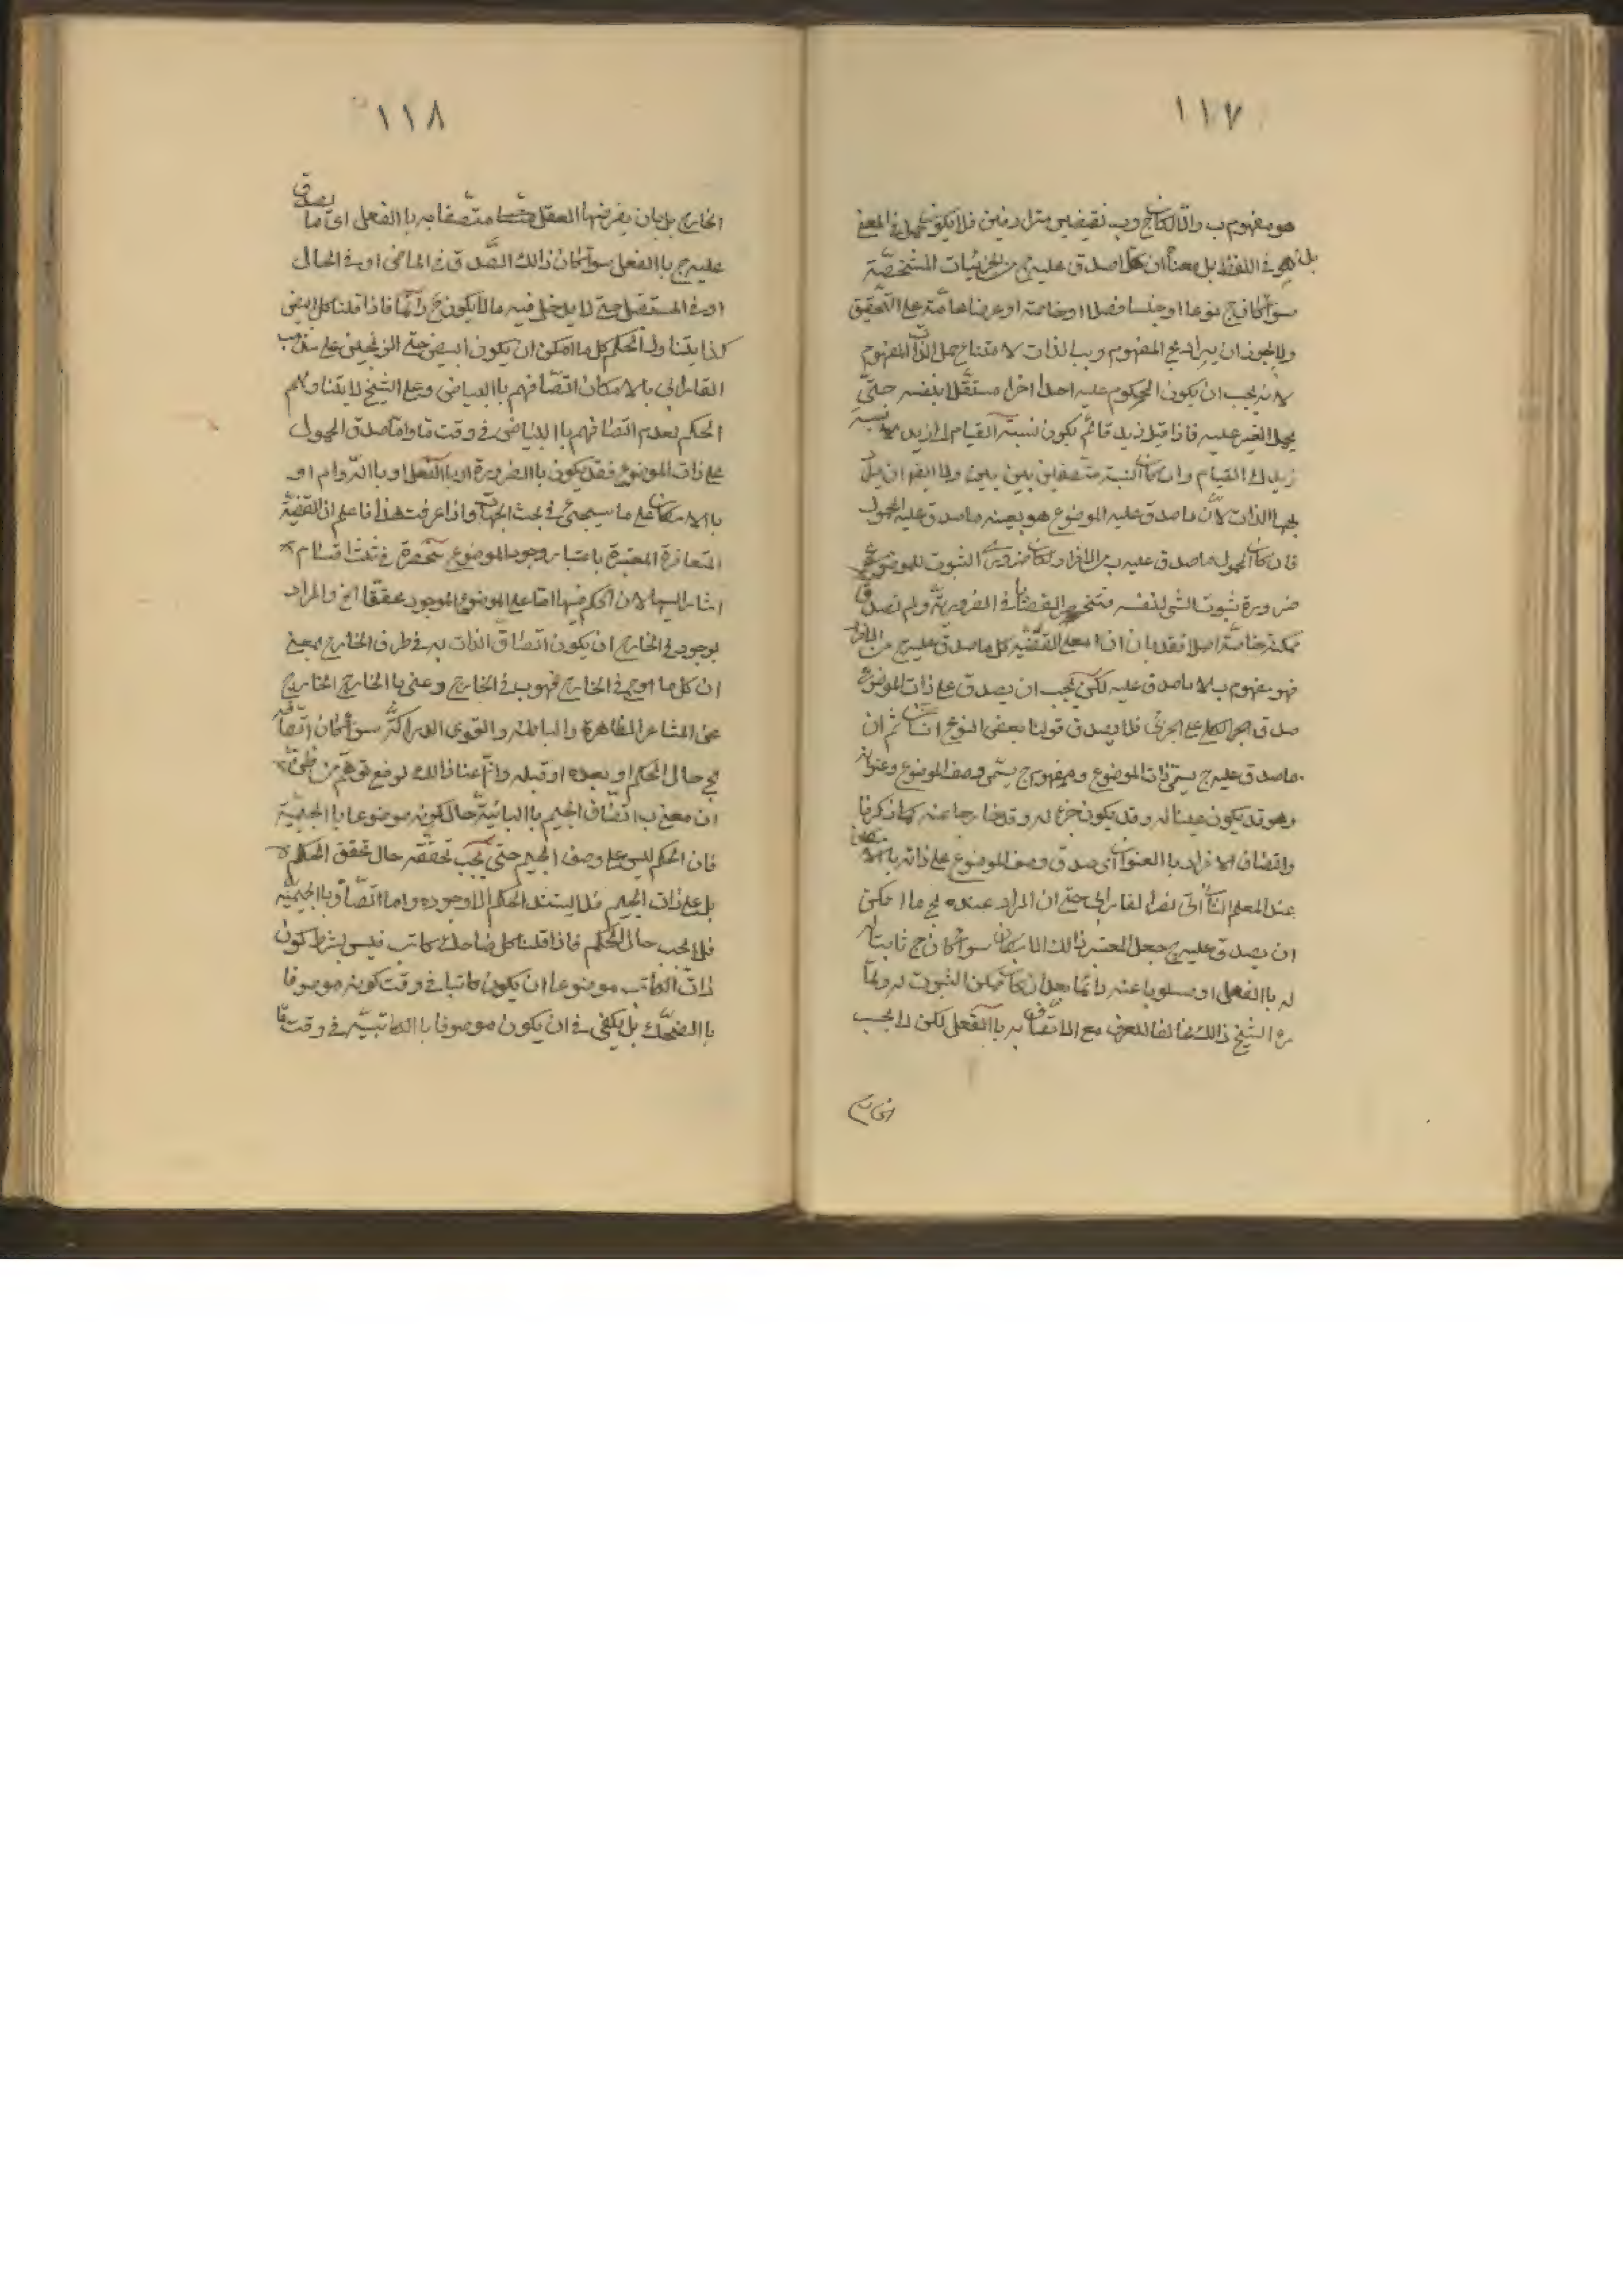 ١١٧
هو مفهوم ب والا لكان ج وب نقيضين مترادفين فلا يكون حمل في المعنى
بل في اللفظ بل معناه ان كلما صدق عليه ج من الجزئيات المشخصّة
سواء كان ج نوعا او جنسا فصلا او خاصة او عرضا عامّة على التحقيق
ولا يجوز ان يراد بج المفهوم وبب الذات لامتناع حمل الذات المفهوم
لانه يجب ان يكون المحكوم عليه احدا اخرا مستقلا بنفسه حتّى
يحمل الغير عليه فاذا قيل زيد قائم يكون نسبة القيام الى زيد لا نسبة
زيد الى القيام وان كانت النسبة متصفا بين بين ولا ايضا ان يراد
بهما الذات لانّ ما صدق عليه الموضوع هو بعينه ما صدق عليه المحمول
فان كان المحمول ما صدق عليه ب من الافراد لكان ضروري الثبوت للموضوع
ضرورة ثبوت الشي لنفسه فتنحصر القضايا في الضروريّة ولم تصدق
ممكنة خاصّة اصلا فقد بان ان معنى القضيّة كل ما صدق عليه ج من الافراد
فهو مفهوم ب لا ما صدق عليه لكن يجب ان يصدق على ذات الموضوع
صدق الكلي على الجزئي فلا يصدق قولنا بعض النوع انسان ثم ان
ما صدق عليه ج يسمّى ذات الموضوع ومفهوم ج يسمّى وصف الموضوع وعنوانه
وهو قد يكون عينا له وقد يكون جزء له وقد خارجا عنه كما ذكرنا
واتصاف الافراد با العنوان اى صدق وصف الموضوع على ذاته بالامكان
عند المعلم الثاني الفارابي حتى ان المراد عنده بج ما امكن
ان يصدق عليه ج جعل المعتبر ذالك الامكان سواء كان ج ثابتا
له با الفعل او مسلوبا عنه دائما بعد ان كان ممكن الثبوت له ولمّا
راه الشيخ ذالك مخالفا للعرف مع الاتصاف به با الفعل لكن لا يجب
١١٨
الخارج بل بان يفرضها العقل متصفا به با الفعل اى ما يصدق
عليه ج با الفعل سواء كان ذالك الصّدق في الماضي او في الحال
او في المستقبل حتى لا يدخل فيه ما لا يكون ج دائما فاذا قلنا كل ابيض
كذا يتناول الحكم كل ما امكن ان يكون ابيض حتى الزنجيين على مذهب
الفارابي بالامكان اتّصافهم با البياض وعلى الشيخ لا يتناولهم
الحكم لعدم اتصافهم با البياض في وقت مّا واما صدق المحمول
على ذات الموضوع فقد يكون با الضرورة او با الفعل او با الدّوام او
با الامكان على ما سيجئ في بحث الجهات واذا عرفت هذا فاعلم ان القضيّة
المتعارفة المعتبرة باعتبار وجود الموضوع منحصرة في ثلث اقسام
اشار اليها لان الحكم فيها اما على الموضوع الموجود محققا الخ والمراد
بوجود في الخارج ان يكون اتّصاف الذات به في ظرف الخارج بمعنى
ان كل ما هو ج في الخارج فهو ب في الخارج وعنى با الخارج الخارج
عن المشاعر الظاهرة والباطنه والقوى الدراكة سواء كان اتصافه
بج حال الحكم او بعده او قبله وانّما عنا ذالك لدفع توهّم من ظنّ
ان معنى ب اتّصاف الجيم با البائيّة حال كونه موضوعا با الجيميّة
فان الحكم ليس على وصف الجيم حتى يجب تحققه حال تحقق الحكم
بل على ذات الجيم فلا يستند الحكم الا وجوده واما اتصافه با الجيميّة
فلا يجب حال الحكم فاذا قلنا كل ضاحك كاتب فليس بشرط كون
ذات الكاتب موضوعا ان يكون كاتبا في وقت كونه موصوفا
با الضحك بل يكفى في ان يكون موصوفا با الكاتبيّه في وقت مّا